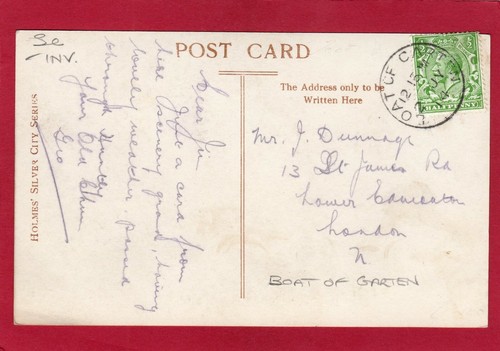 3c
INV.
POST CARD
The Address only to be
Written Here
HOLMES' SILVER CITY SERIES
Dear Jim
Just a card from
here scenery grand, having
lovely weather, passed
through
your Old Chum
Geo
Mr. J. Dunnage
13 St James Rd
Lower Edmonton
London
N
BOAT OF GARTEN
BOAT OF
HALFPENNY